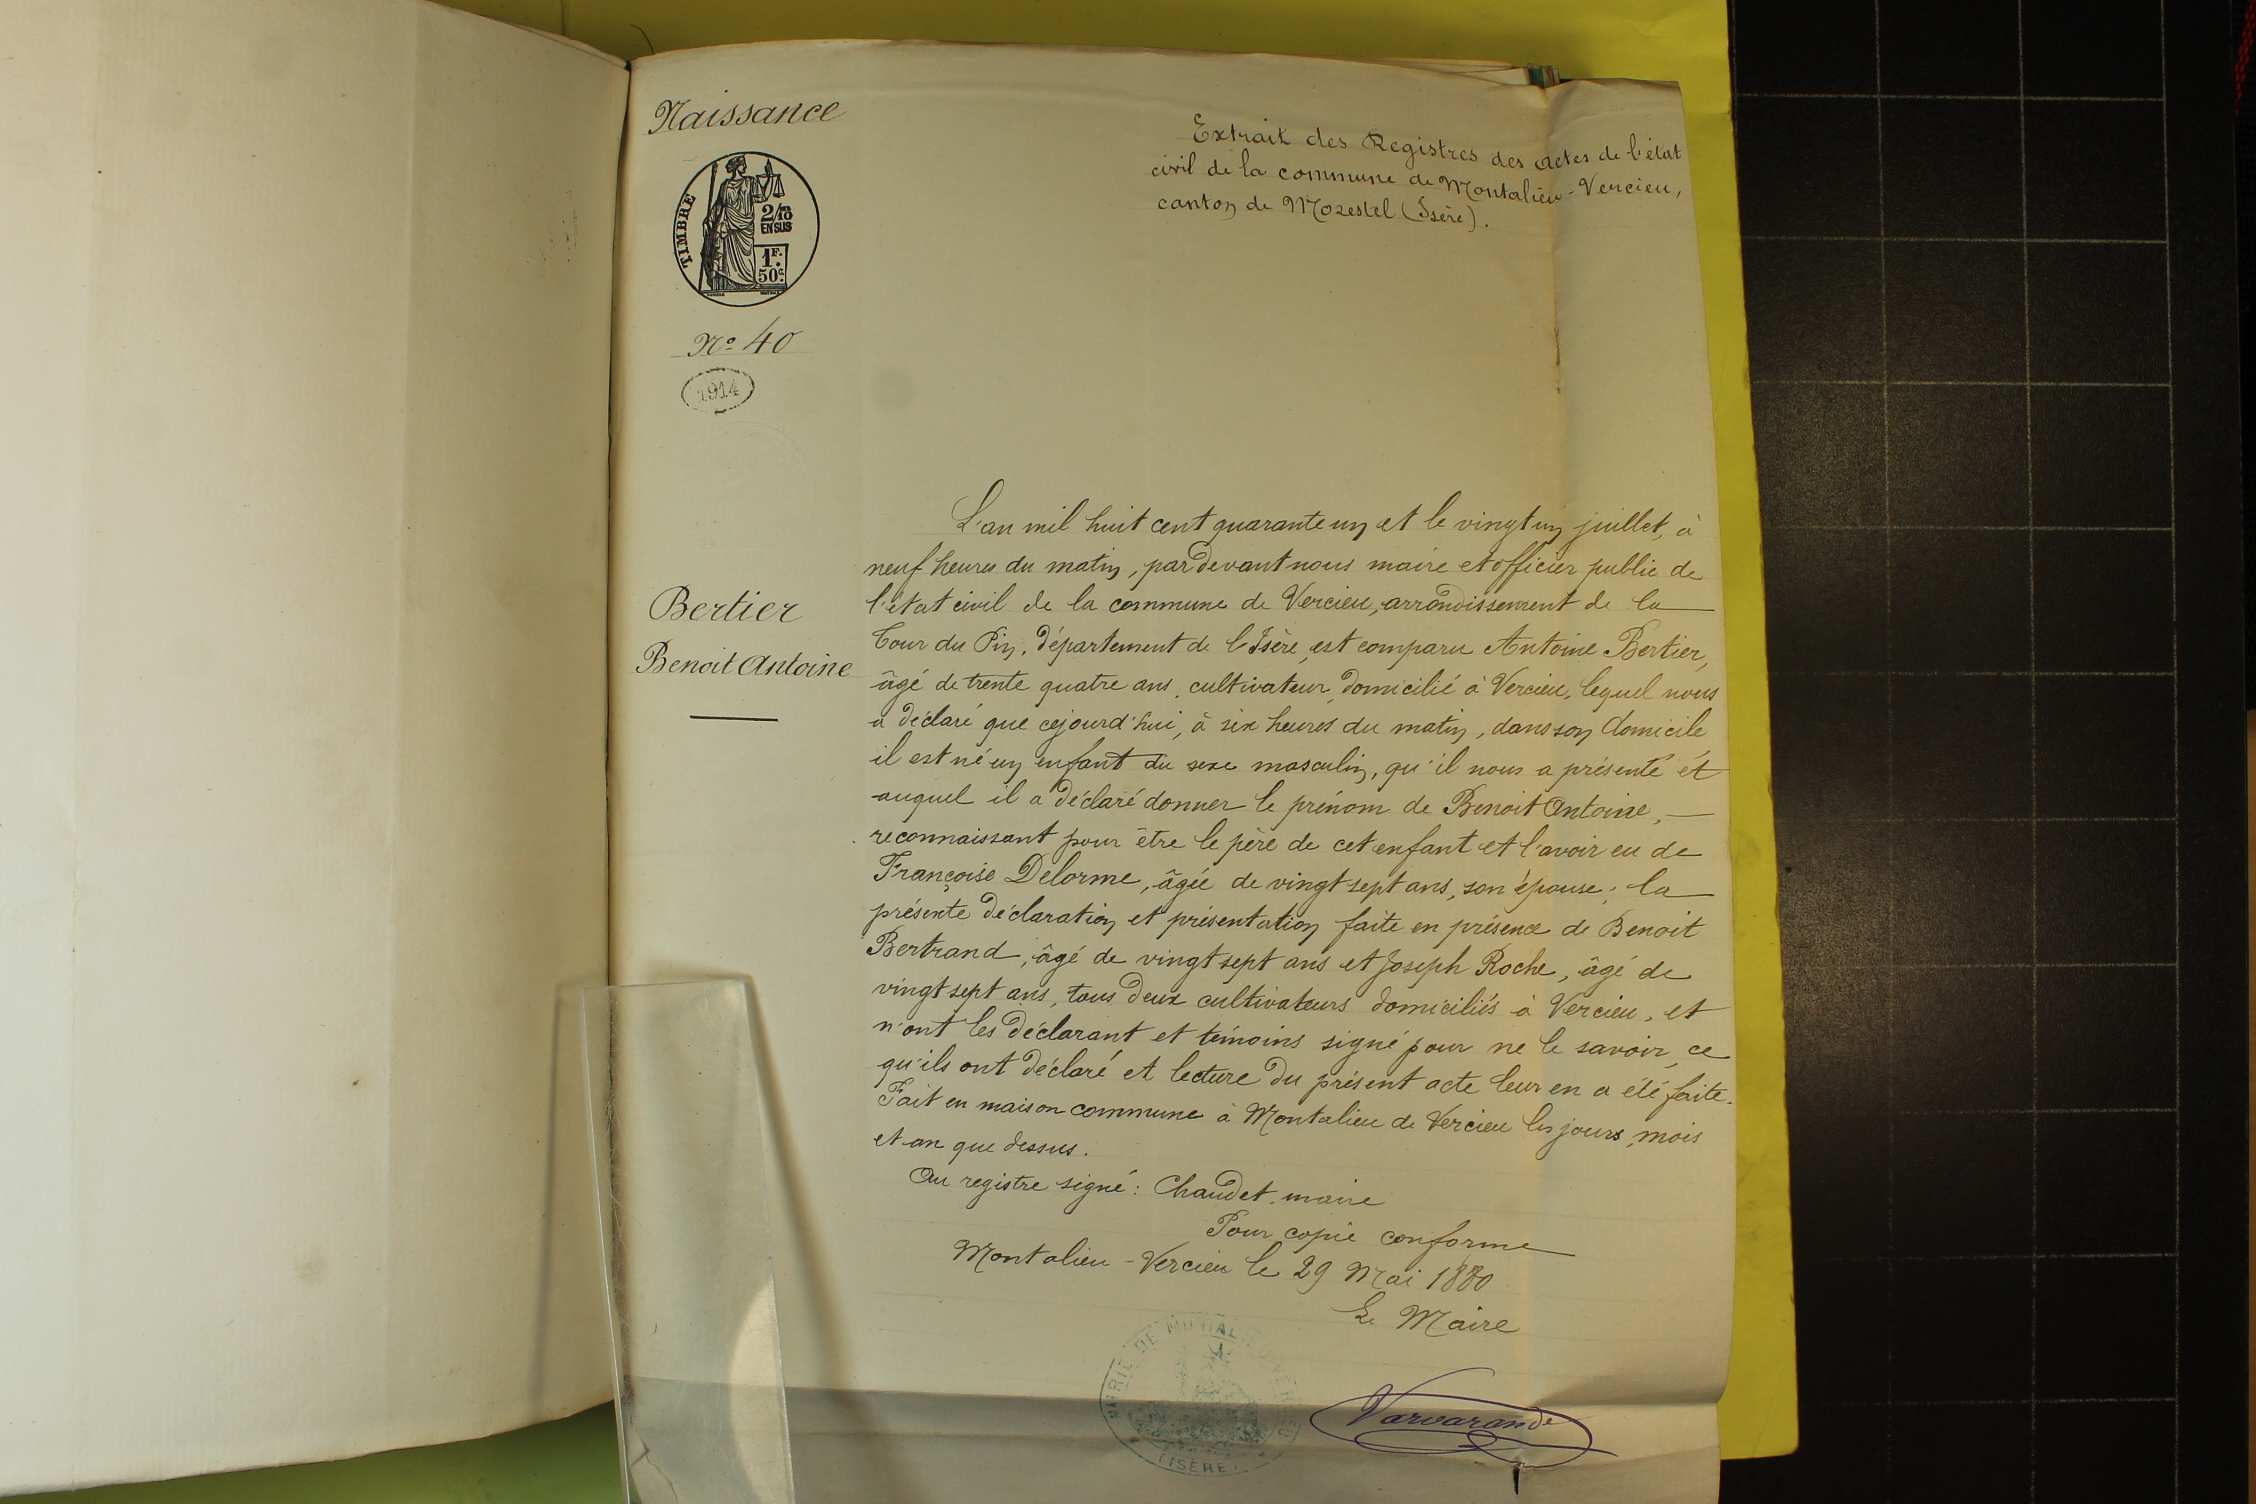 Naissance
TIMBRE
2/10
EN SUS
1F.
50c.
No 40
1914
Bertier
Benoit Antoine
Extrait des Registres des actes de l'état
civil de la commune de Montalieu-Vercieu,
canton de Morestel (Isère).
L'an mil huit cent quarante un et le vingt un juillet, à
neuf heures du matin, pardevant nous maire et officier public de
l'état civil de la commune de Vercieu, arrondissement de la
Tour du Pin, département de l'Isère, est comparu Antoine Bertier,
âgé de trente quatre ans, cultivateur, domicilié à Vercieu, lequel nous
a déclaré que cejourd'hui, à six heures du matin, dans son domicile
il est né un enfant du sexe masculin, qu'il nous a présenté et
auquel il a déclaré donner le prénom de Benoit Antoine,
reconnaissant pour être le père de cet enfant et l'avoir eu de
Françoise Delorme, âgée de vingt sept ans, son épouse; la
présente déclaration et présentation faite en présence de Benoit
Bertrand, âgé de vingt sept ans et Joseph Roche, âgé de
vingt sept ans, tous deux cultivateurs domiciliés à Vercieu, et
n'ont les déclarant et témoins signé pour ne le savoir, ce
qu'ils ont déclaré et lecture du présent acte leur en a été faite.
Fait en maison commune à Montalieu de Vercieu les jours, mois
et an que dessus.
Au registre signé: Chaudet, maire
Pour copie conforme
Montalieu-Vercieu le 29 Mai 1880
Le Maire
Varvarande
MAIRIE DE
(ISÈRE)